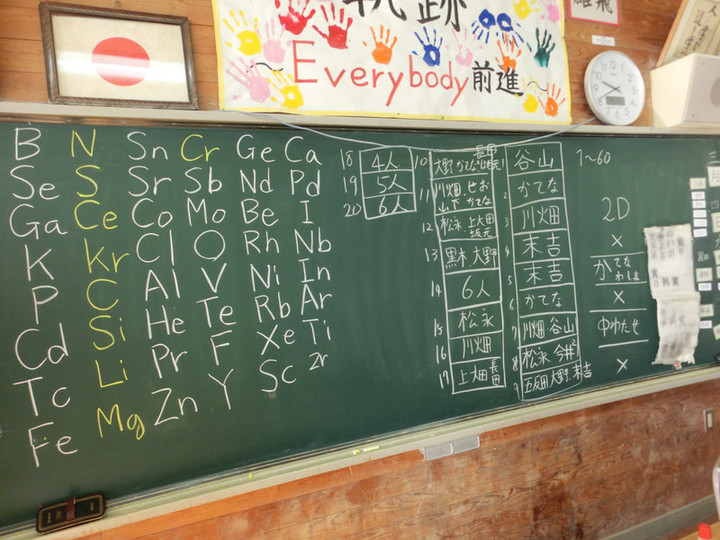 軌跡
~Everybody前進~
B N Sn Cr Ge Ca
Se S Sr Sb Nd Pd
Ga Ce Co Mo Be I
K Kr Cl O Rh Nb
P C Al V Ni In
Cd Si He Te Rb Ar
Tc Li Pr F Xe Ti
Fe Mg Zn Y Sc Zr
18 4人
19 5人
20 6人
10 大野 かてな
11 川畑 せお
山下 かてな
12 松永 上大田
坂元
13 黒木 大野
14 6人
15 松永
16 川畑
17 上畑 長田
谷山
2 かてな
3 川畑
4 末吉
5 末吉
6 かてな
7 川畑 谷山
8 松永 今村
9 五反田 大野 末吉
1~60
2D
×
かてな
わしま
×
中わたせ
×